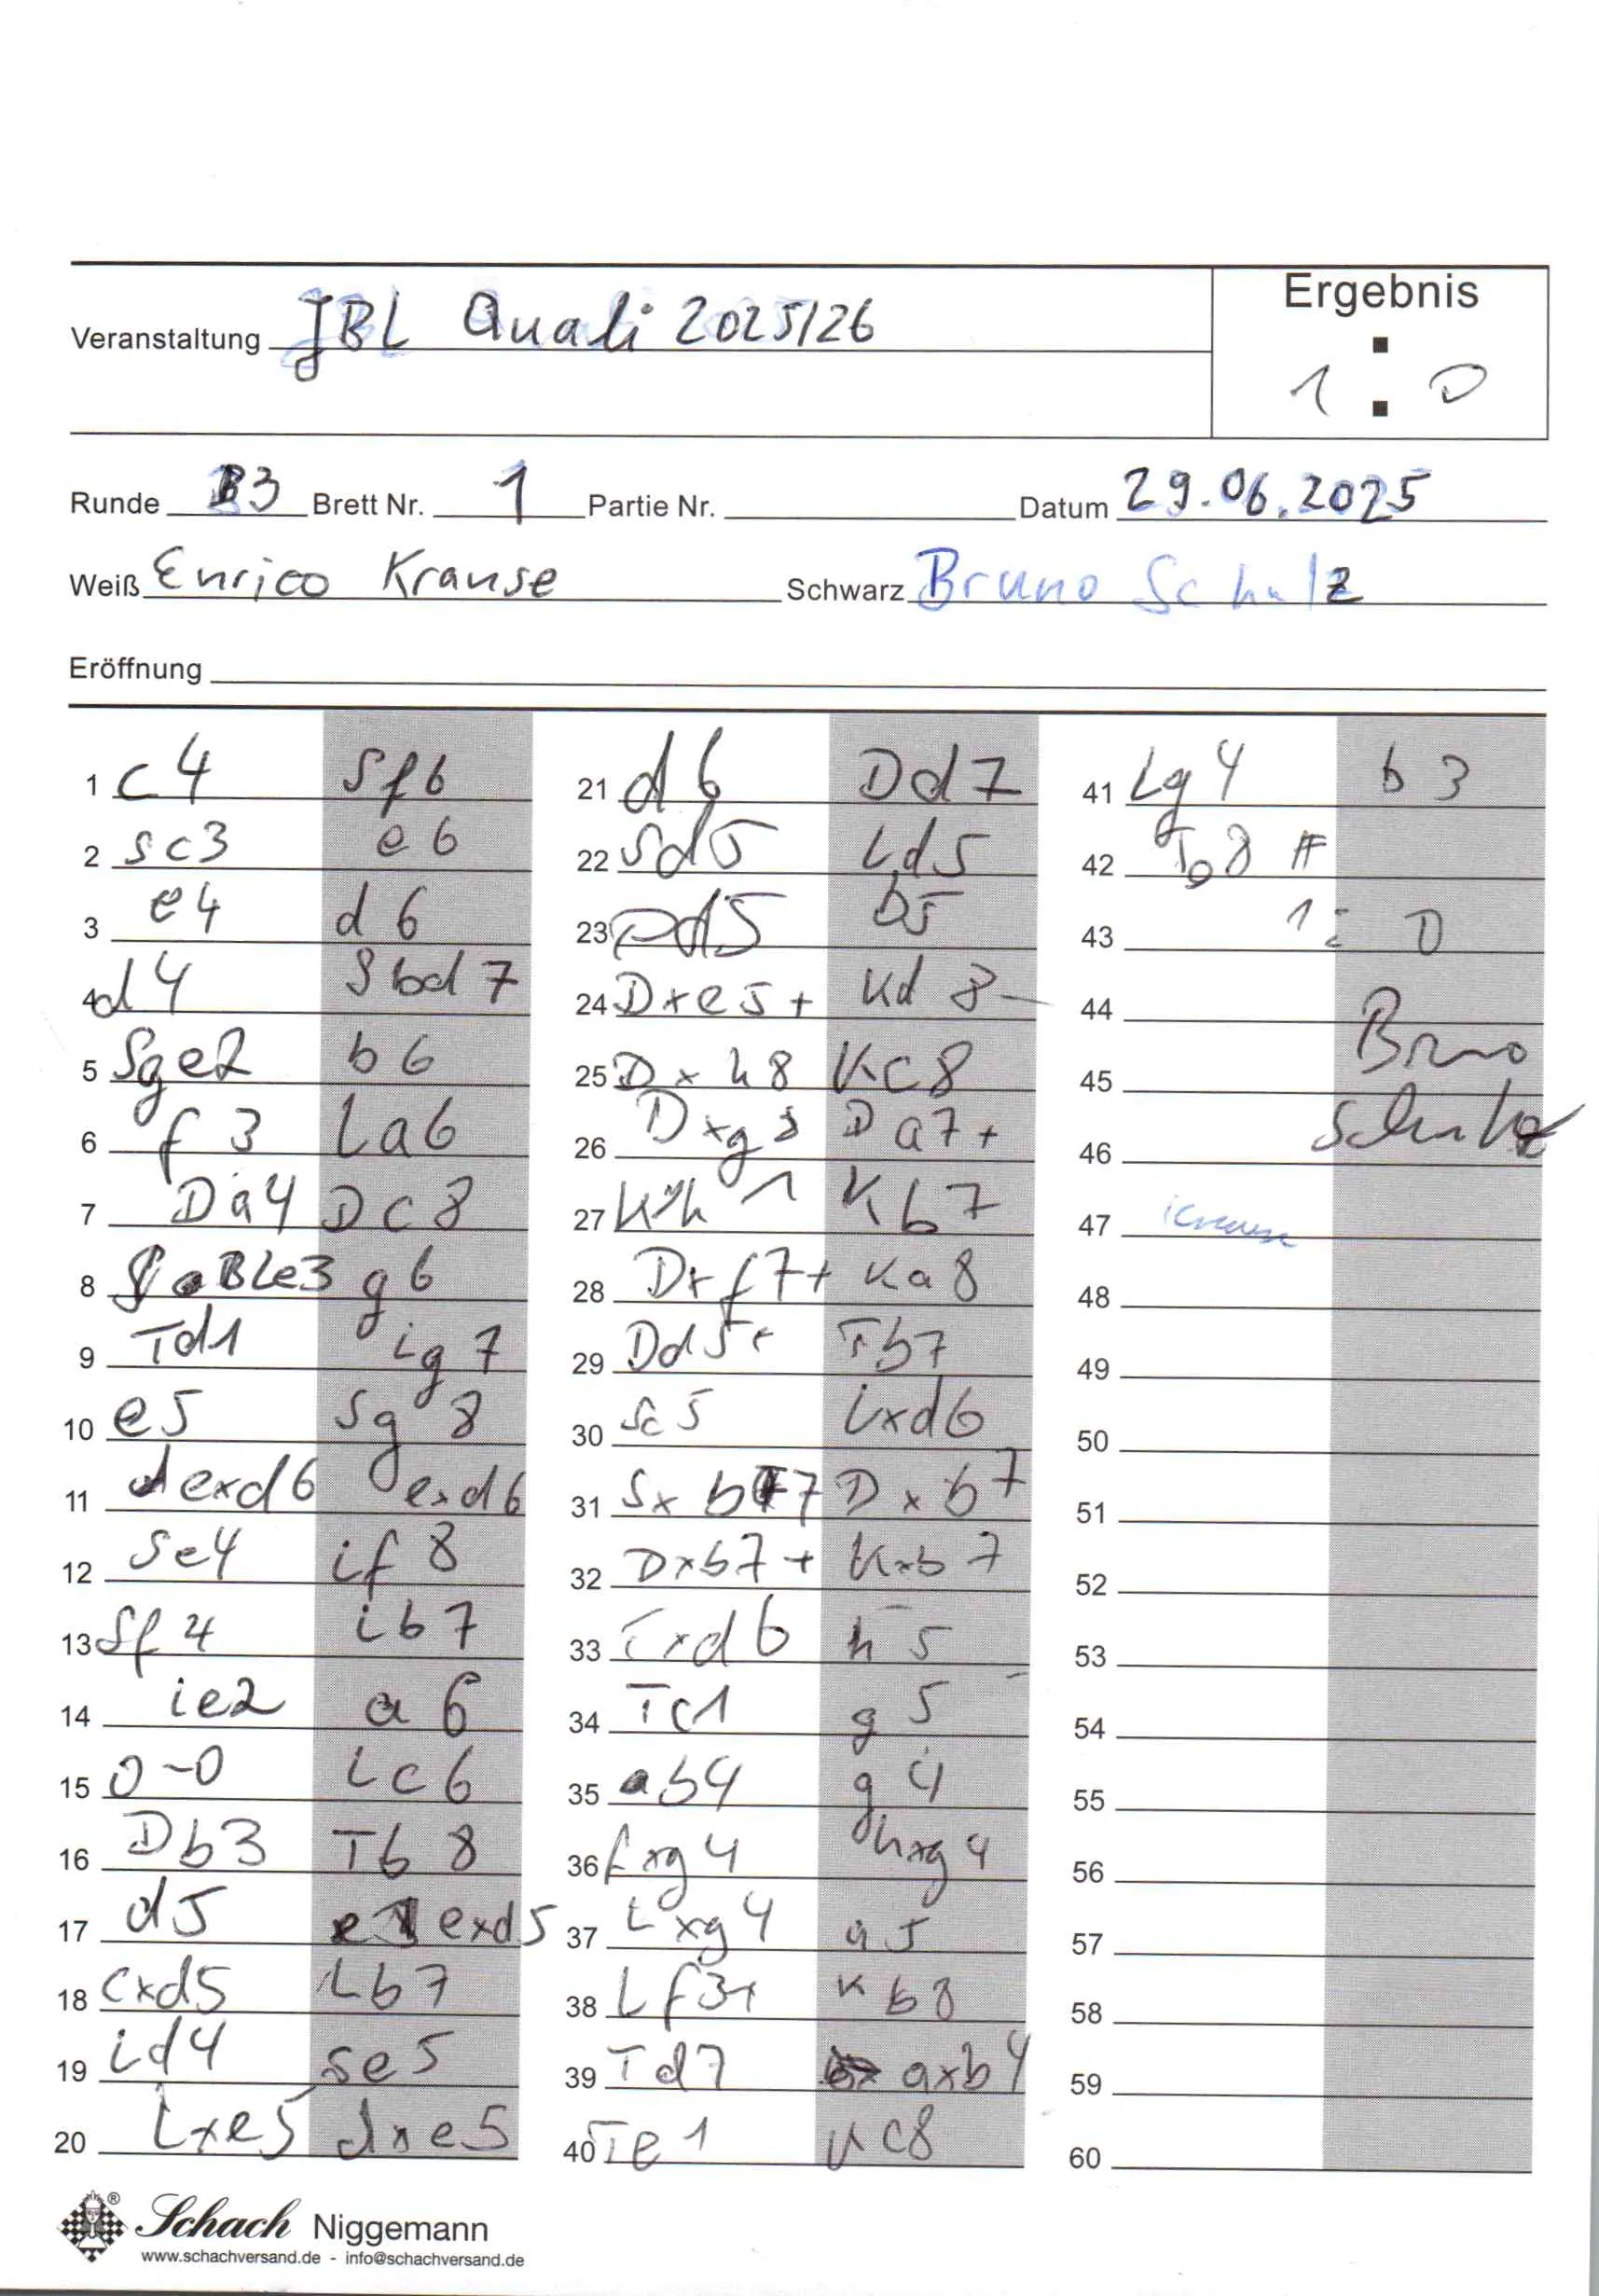 Ergebnis
Veranstaltung JBL Quali 2025/26
1 : 0
Runde 3 Brett Nr. 1 Partie Nr. Datum 29.06.2025
Weiß Enrico Krause Schwarz Bruno Schulz
Eröffnung
1 c4 Sf6
2 Sc3 e6
3 e4 d6
4 d4 Sbd7
5 Sge2 b6
6 f3 La6
7 Da4 Dc8
8 Le3 g6
9 Td1 Lg7
10 e5 Sg8
11 exd6 exd6
12 Se4 Lf8
13 Sf4 Lb7
14 Le2 a6
15 0-0 Lc6
16 Db3 Tb8
17 d5 exd5
18 cxd5 Lb7
19 Ld4 Se5
20 Lxe5 dxe5
21 d6 Dd7
22 Sd5 Ld5
23 Dd5 b5
24 Dxe5+ Kd8
25 Dxh8 Kc8
26 Dxg8 Da7+
27 Kh1 Kb7
28 Dxf7+ Ka8
29 Dd5+ Tb7
30 Sc5 Lxd6
31 Sxb7 Dxb7
32 Dxb7+ Kxb7
33 Txd6 h5
34 Tc1 g5
35 b4 g4
36 fxg4 hxg4
37 Lxg4 a5
38 Lf3+ Kb8
39 Td7 axb4
40 Te1 Kc8
41 Lg4 b3
42 Te8 #
43 1 : 0
44
45 Bruno
46 Schulz
47 Krause
48
49
50
51
52
53
54
55
56
57
58
59
60
® Schach Niggemann
www.schachversand.de - info@schachversand.de